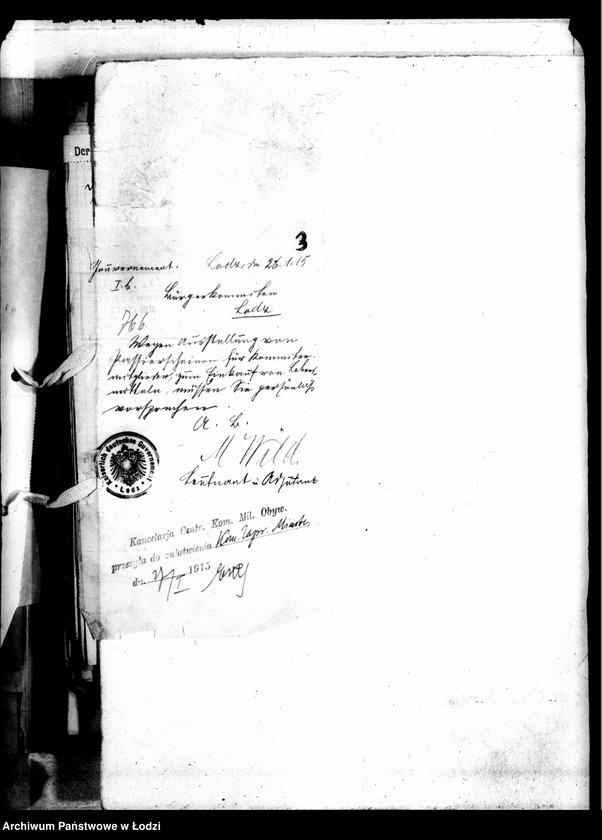 Der
3
Gouvernement. Lodz, den 26.1.15
I.b.
Bürgerkommitee
Lodz
766
Wegen Ausstellung von
Passierscheinen für Kommitee-
mitglieder, zum Einkauf von Lebens
mitteln, müssen Sie persönlich
vorsprechen.
A. B.
M Wild
Leutnant u Adjutant
Kaiserlich deutsches Gouvernement
Lodz
Kancelarja Centr. Kom. Mil. Obyw.
przesyła do załatwienia Kom. Zapr. Miasta
dn. 27/I 1915
Archiwum Państwowe w Łodzi